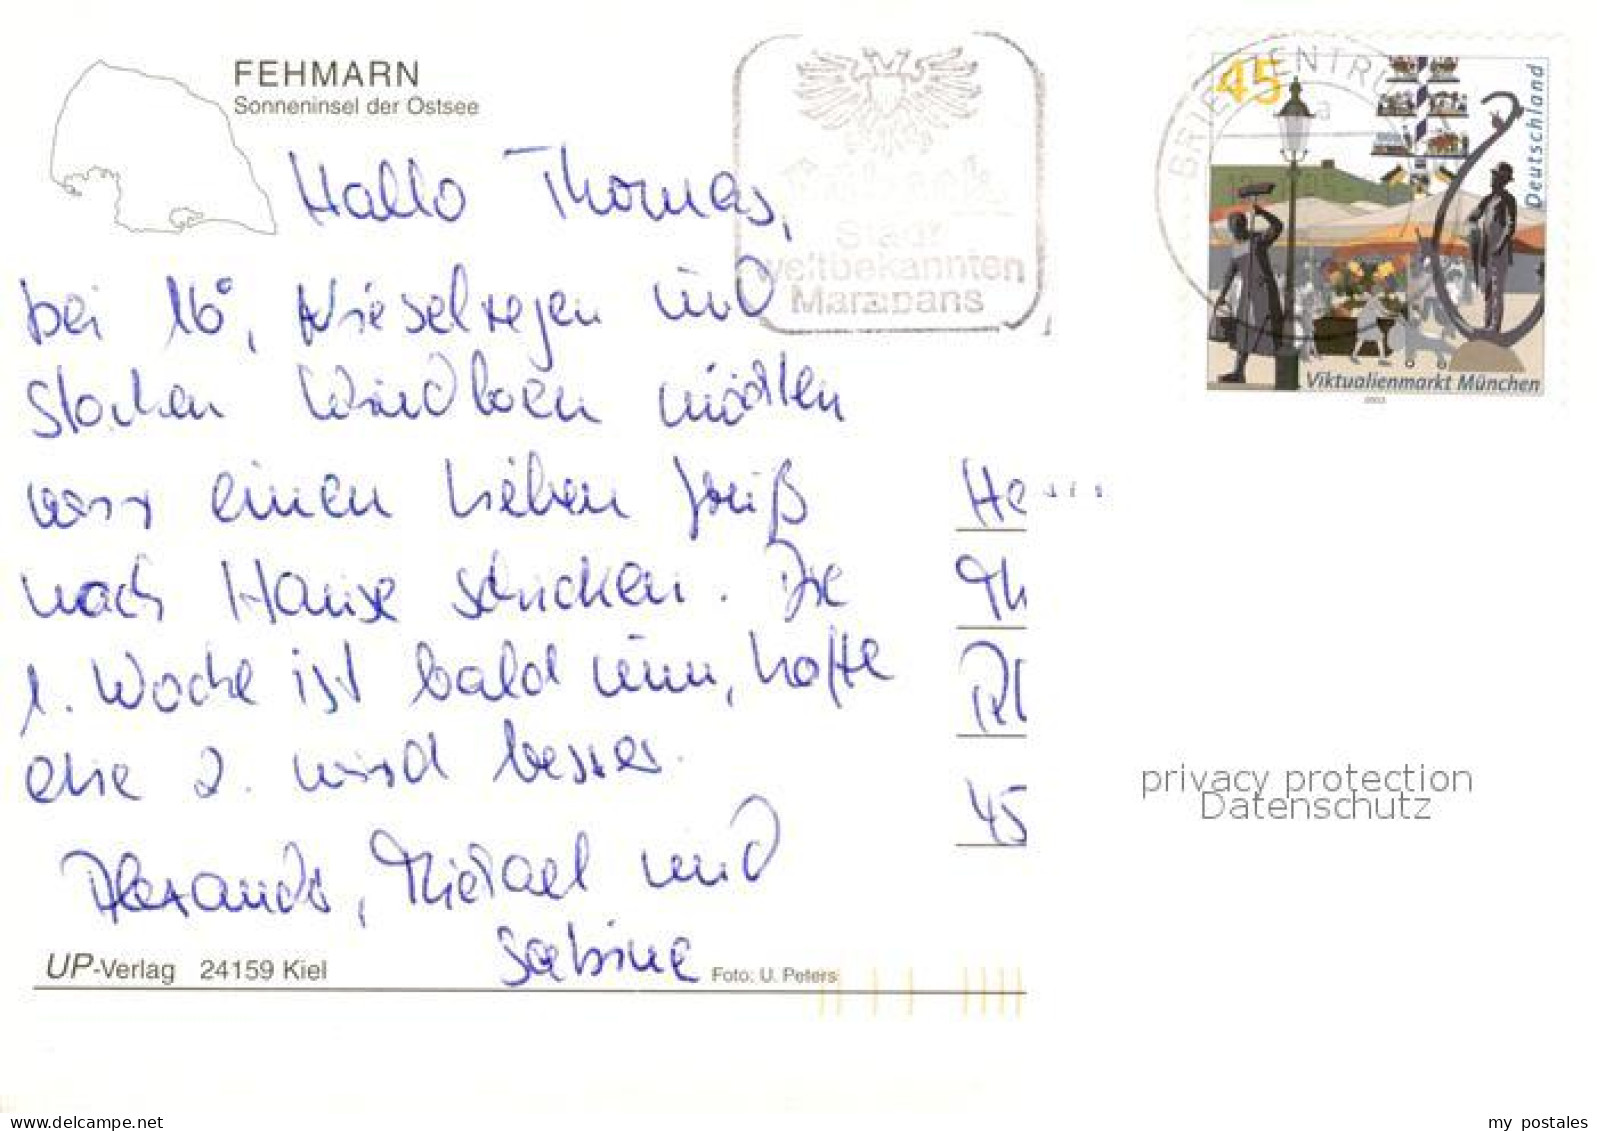 FEHMARN
Sonneninsel der Ostsee
Hallo Thomas,
bei 16°, Nieselregen und
starken Windböen möchten
wir einen lieben Gruß
nach Hause schicken. Die
1. Woche ist bald um, hoffe
die 2. wird besser.
Alexandra, Michael und
Sabine
UP-Verlag 24159 Kiel
Foto: U. Peters
Lübeck
Stadt
weltbekannten
Marzipans
BRIEFZENTRUM
a
45
Deutschland
Viktualienmarkt München
2003
He
Th
45
privacy protection
Datenschutz
delcampe.net
my postales